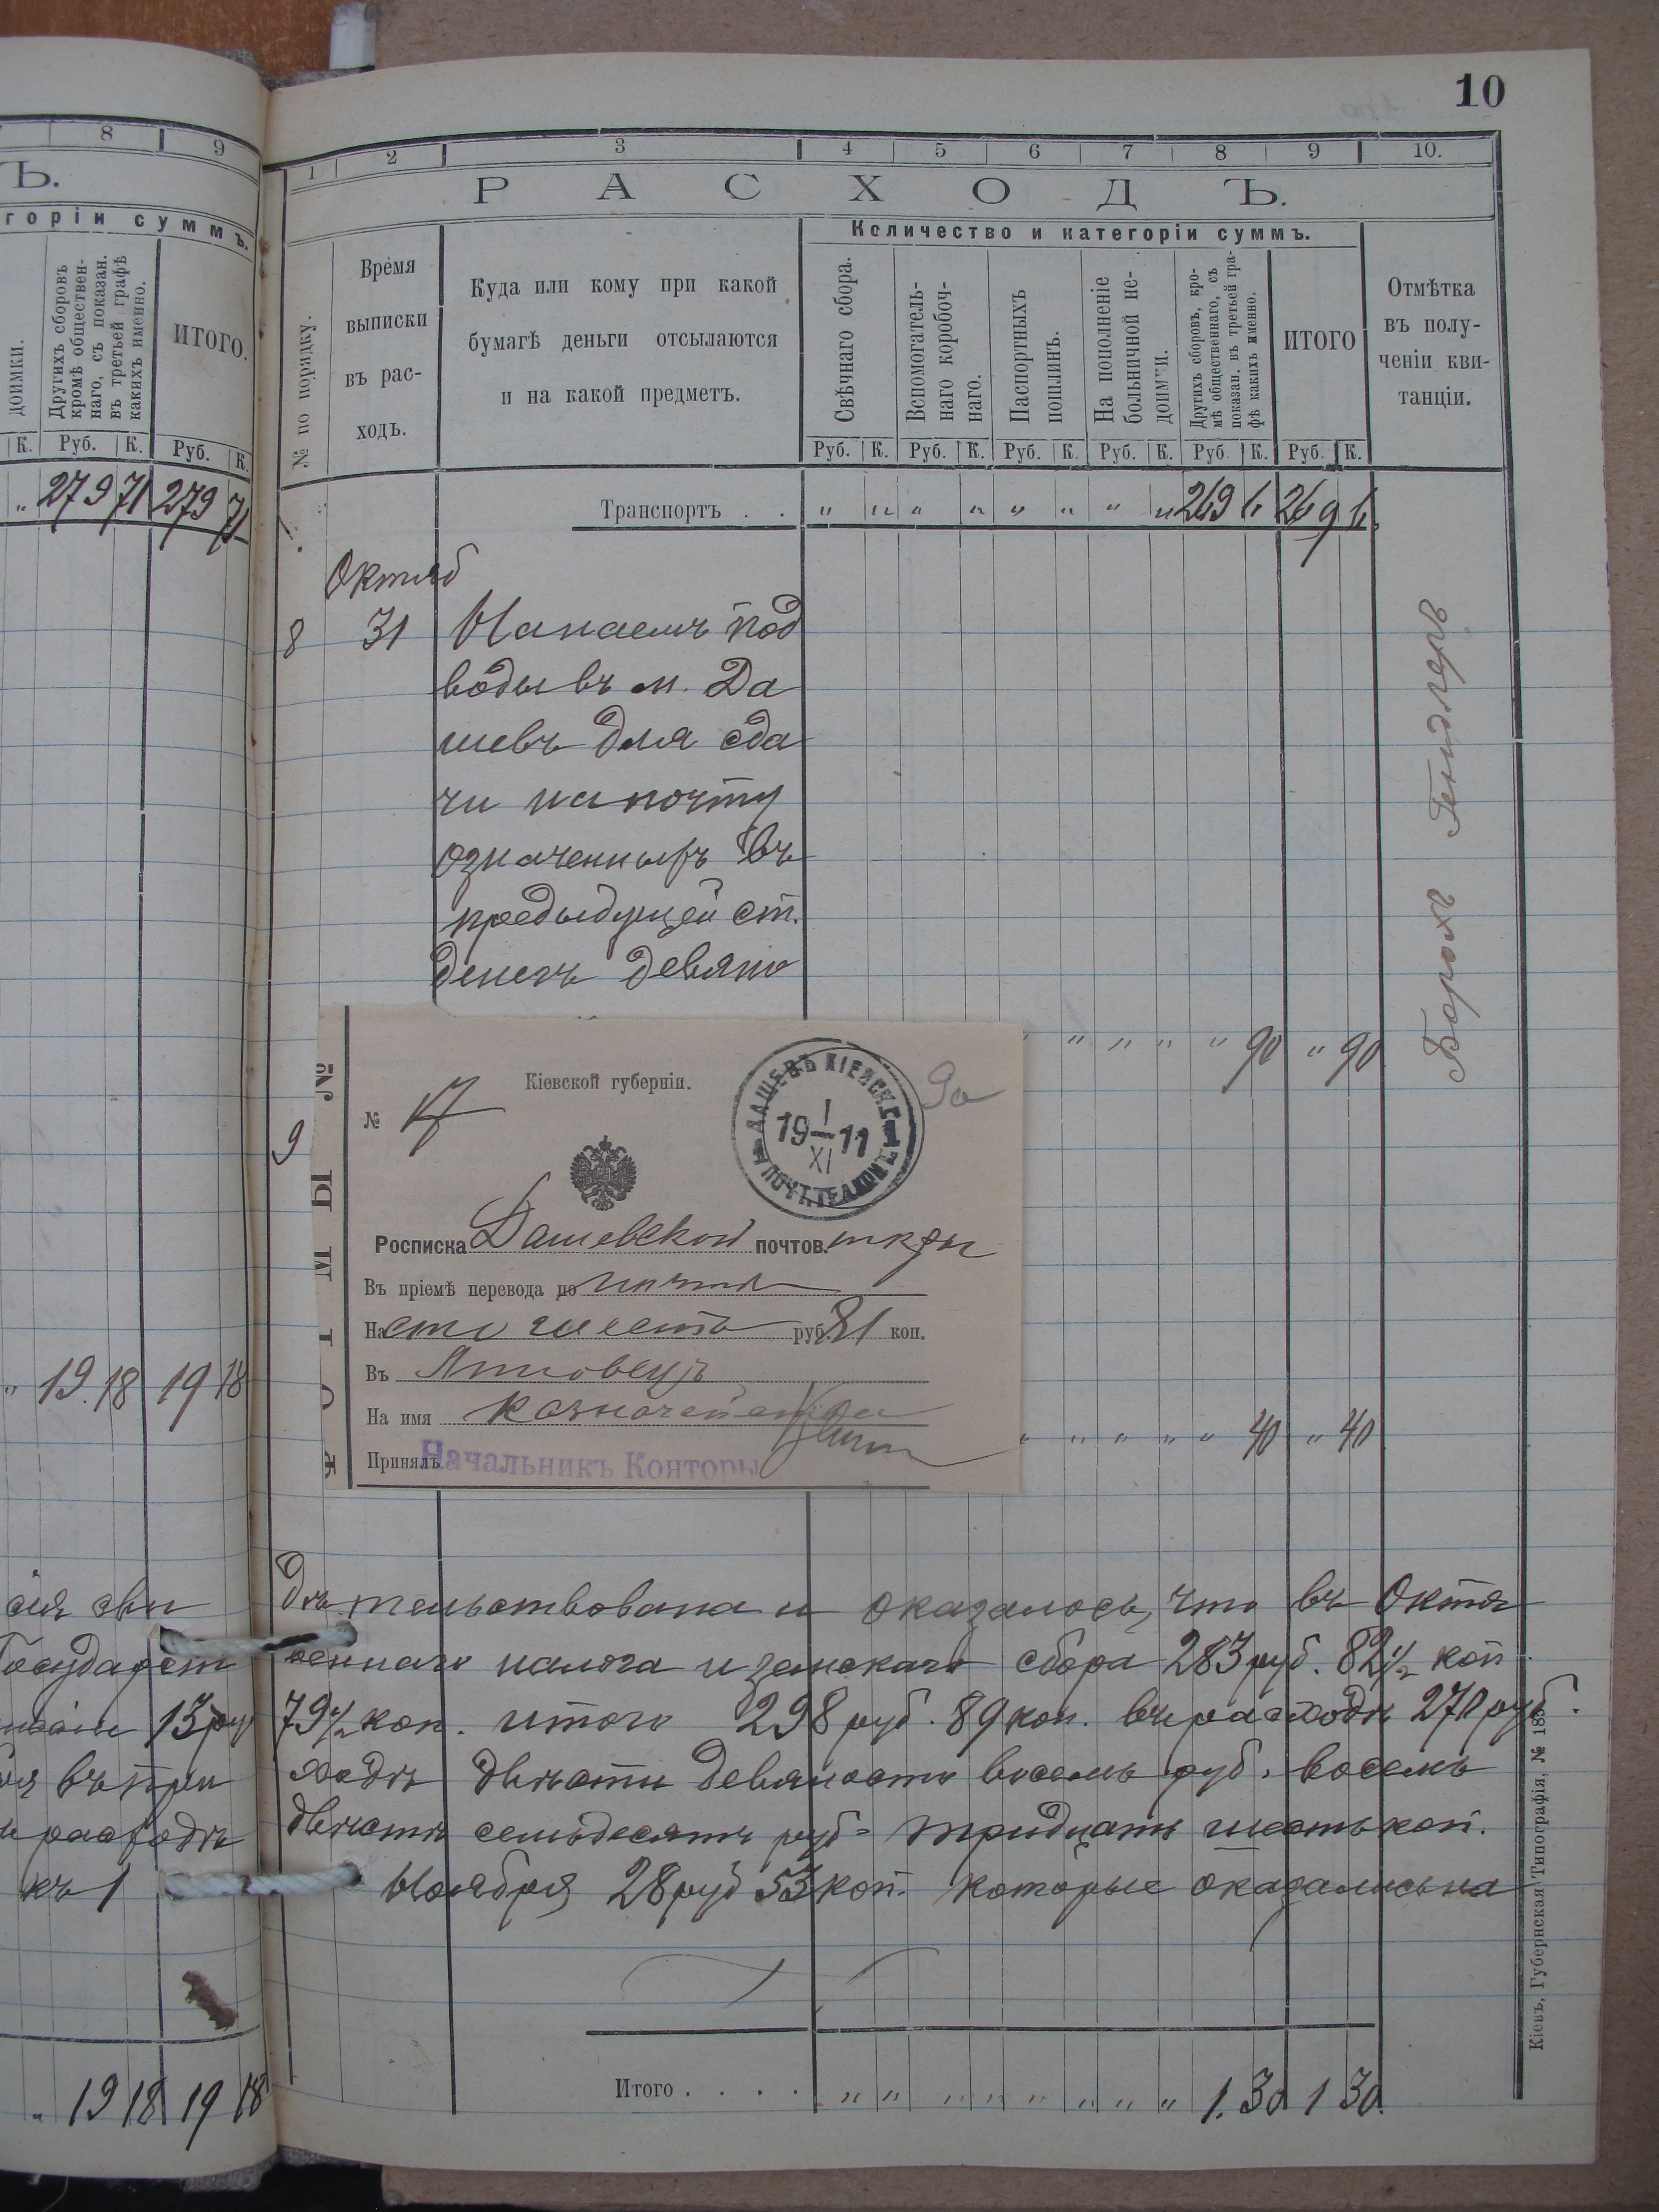 10
8 9
Ъ.
горіи суммъ.
доимки.
Другихъ сборовъ
кромѣ обществен-
наго, съ показан.
въ третьей графѣ
какихъ именно.
ИТОГО.
К. Руб. К. Руб. К.
" 279 71 279 71
" 19 18 19 18
1 2 3 4 5 6 7 8 9 10.
РАСХОДЪ.
Количество и категоріи суммъ.
№ по порядку.
Время
выписки
въ рас-
ходъ.
Куда или кому при какой
бумагѣ деньги отсылаются
и на какой предметъ.
Свѣчнаго сбора.
Вспомогатель-
наго коробоч-
наго.
Паспортныхъ
пошлинъ.
На пополненіе
больничной не-
доимки.
Другихъ сборовъ, кро-
мѣ общественнаго, съ
показан. въ третьей гра-
фѣ какихъ именно.
ИТОГО
Отмѣтка
въ полу-
ченіи кви-
танціи.
Руб. К. Руб. К. Руб. К. Руб. К. Руб. К. Руб. К.
Транспортъ . . " " " " " " " " 269 6 269 6.
Октяб
8 31 Нанаемъ под
воды въ м. Да
шевъ для сда
чи на почту
означенныхъ въ
предыдущей ст.
денегъ девяно
" " " " 90 " 90
Борохъ
9
№
Кіевской губерніи.
№ 17
90
ДАШЕВЪ КІЕВСК. Г.
1
19—11
XI
ПОЧТ. ТЕЛ. КОНТ.
Росписка Дашевской почтов. т кры
Въ пріемѣ перевода по почтѣ
На сто шесть руб. 81 коп.
Въ Липовецъ
На имя Казначейства
Принялъ Начальникъ Конторы
" " " " " 40 " 40
сія сви дѣтельствована и оказалось, что въ Октя
Государст веннаго налога и земскаго сбора 283 руб. 82½ коп.
13 ру 79½ коп. итого 298 руб. 89 коп. въ расходѣ 270 руб.
въ при ходѣ двѣсти девяносто восемь руб. восемь
расходѣ двѣсти семьдесятъ руб. тридцать шесть коп.
къ 1 Ноября 28 руб 53 коп. которые оказались на
Итого . . . . " " " " " " " " 1. 30 1 30.
" 19 18 19 18
Кіевъ, Губернская Типографія, № 185